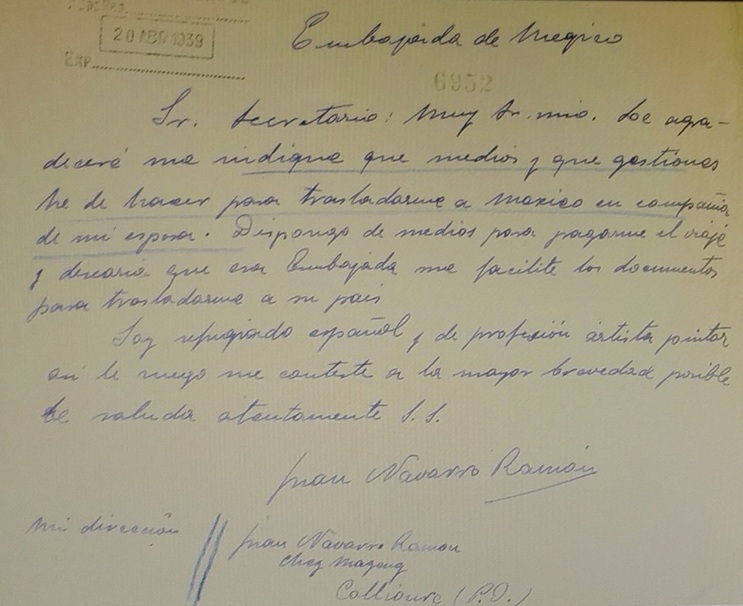 20 ABR 1939
EXP.
Embajada de Megico
6952
Sr. Secretario: Muy Sr. mio. Le agra-
deceré me indique que medios y que gestiones
he de hacer para trasladarme a Maxico en compañia
de mi esposa. Dispongo de medios para pagarme el viaje
y desearia que esa Embajada me facilite los documentos
para trasladarme a su pais
Soy refugiado español y de profesión artista pintor
asi le ruego me conteste a la mayor brevedad posible
Le saluda atentamente S.S.
Juan Navarro Ramón
Mi dirección
Juan Navarro Ramon
chez
Collioure (P.O.)